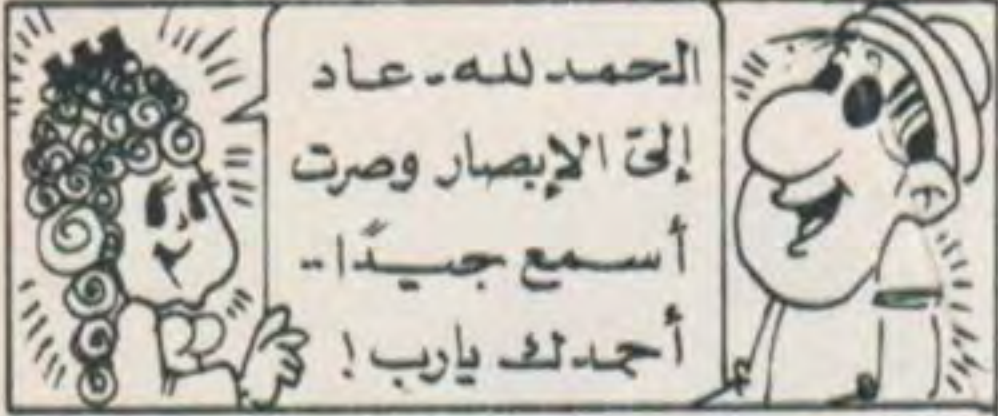 الحمد لله - عاد
إليّ الإبصار وصرت
أسمع جيدًا ..
أحمدك يارب !